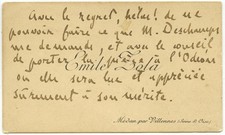 Avec le regret, hélas! de ne
pouvoir faire ce que M. Deschamps
me demande, et avec le conseil
de porter la pièce à l'Odéon
Emile Zola
où elle sera lue et appréciée
sûrement à son mérite.
Médan par Villennes (Seine & Oise)